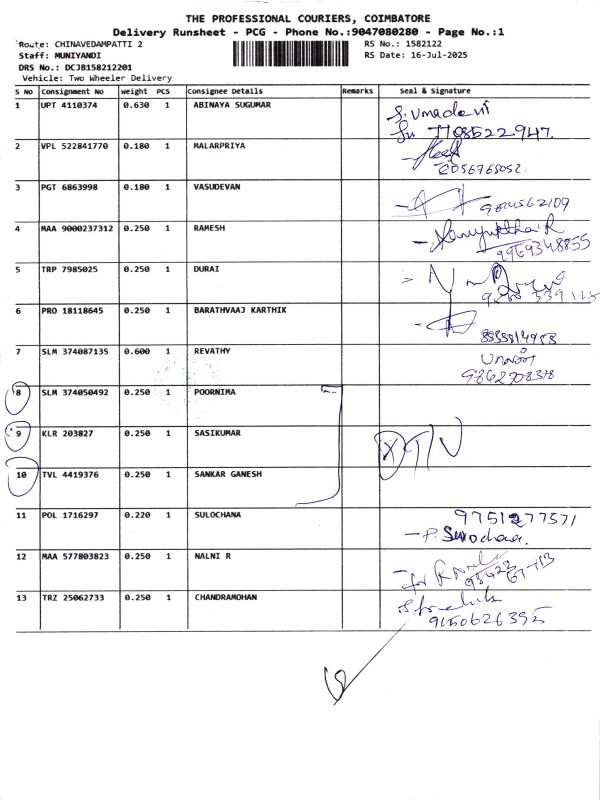 THE PROFESSIONAL COURIERS, COIMBATORE
Delivery Runsheet - PCG - Phone No.:9047080280 - Page No.:1
Route: CHINAVEDAMPATTI 2 RS No.: 1582122
Staff: MUNIYANDI RS Date: 16-Jul-2025
DRS No.: DCJB158212201
Vehicle: Two Wheeler Delivery
S No Consignment No Weight PCS Consignee Details Remarks Seal & Signature
1 UPT 4110374 0.630 1 ABINAYA SUGUMAR S. Umadevi
7708522947.
2 VPL 522841770 0.180 1 MALARPRIYA
3 PGT 6863998 0.180 1 VASUDEVAN
4 MAA 9000237312 0.250 1 RAMESH
9969348855
5 TRP 7985025 0.250 1 DURAI
6 PRO 18118645 0.250 1 BARATHVAAJ KARTHIK
7 SLM 374087135 0.600 1 REVATHY
9862908378
8 SLM 374050492 0.250 1 POORNIMA
9 KLR 203827 0.250 1 SASIKUMAR
10 TVL 4419376 0.250 1 SANKAR GANESH
11 POL 1716297 0.220 1 SULOCHANA 9751277571
12 MAA 577803823 0.250 1 NALNI R
13 TRZ 25062733 0.250 1 CHANDRAMOHAN
9150626395